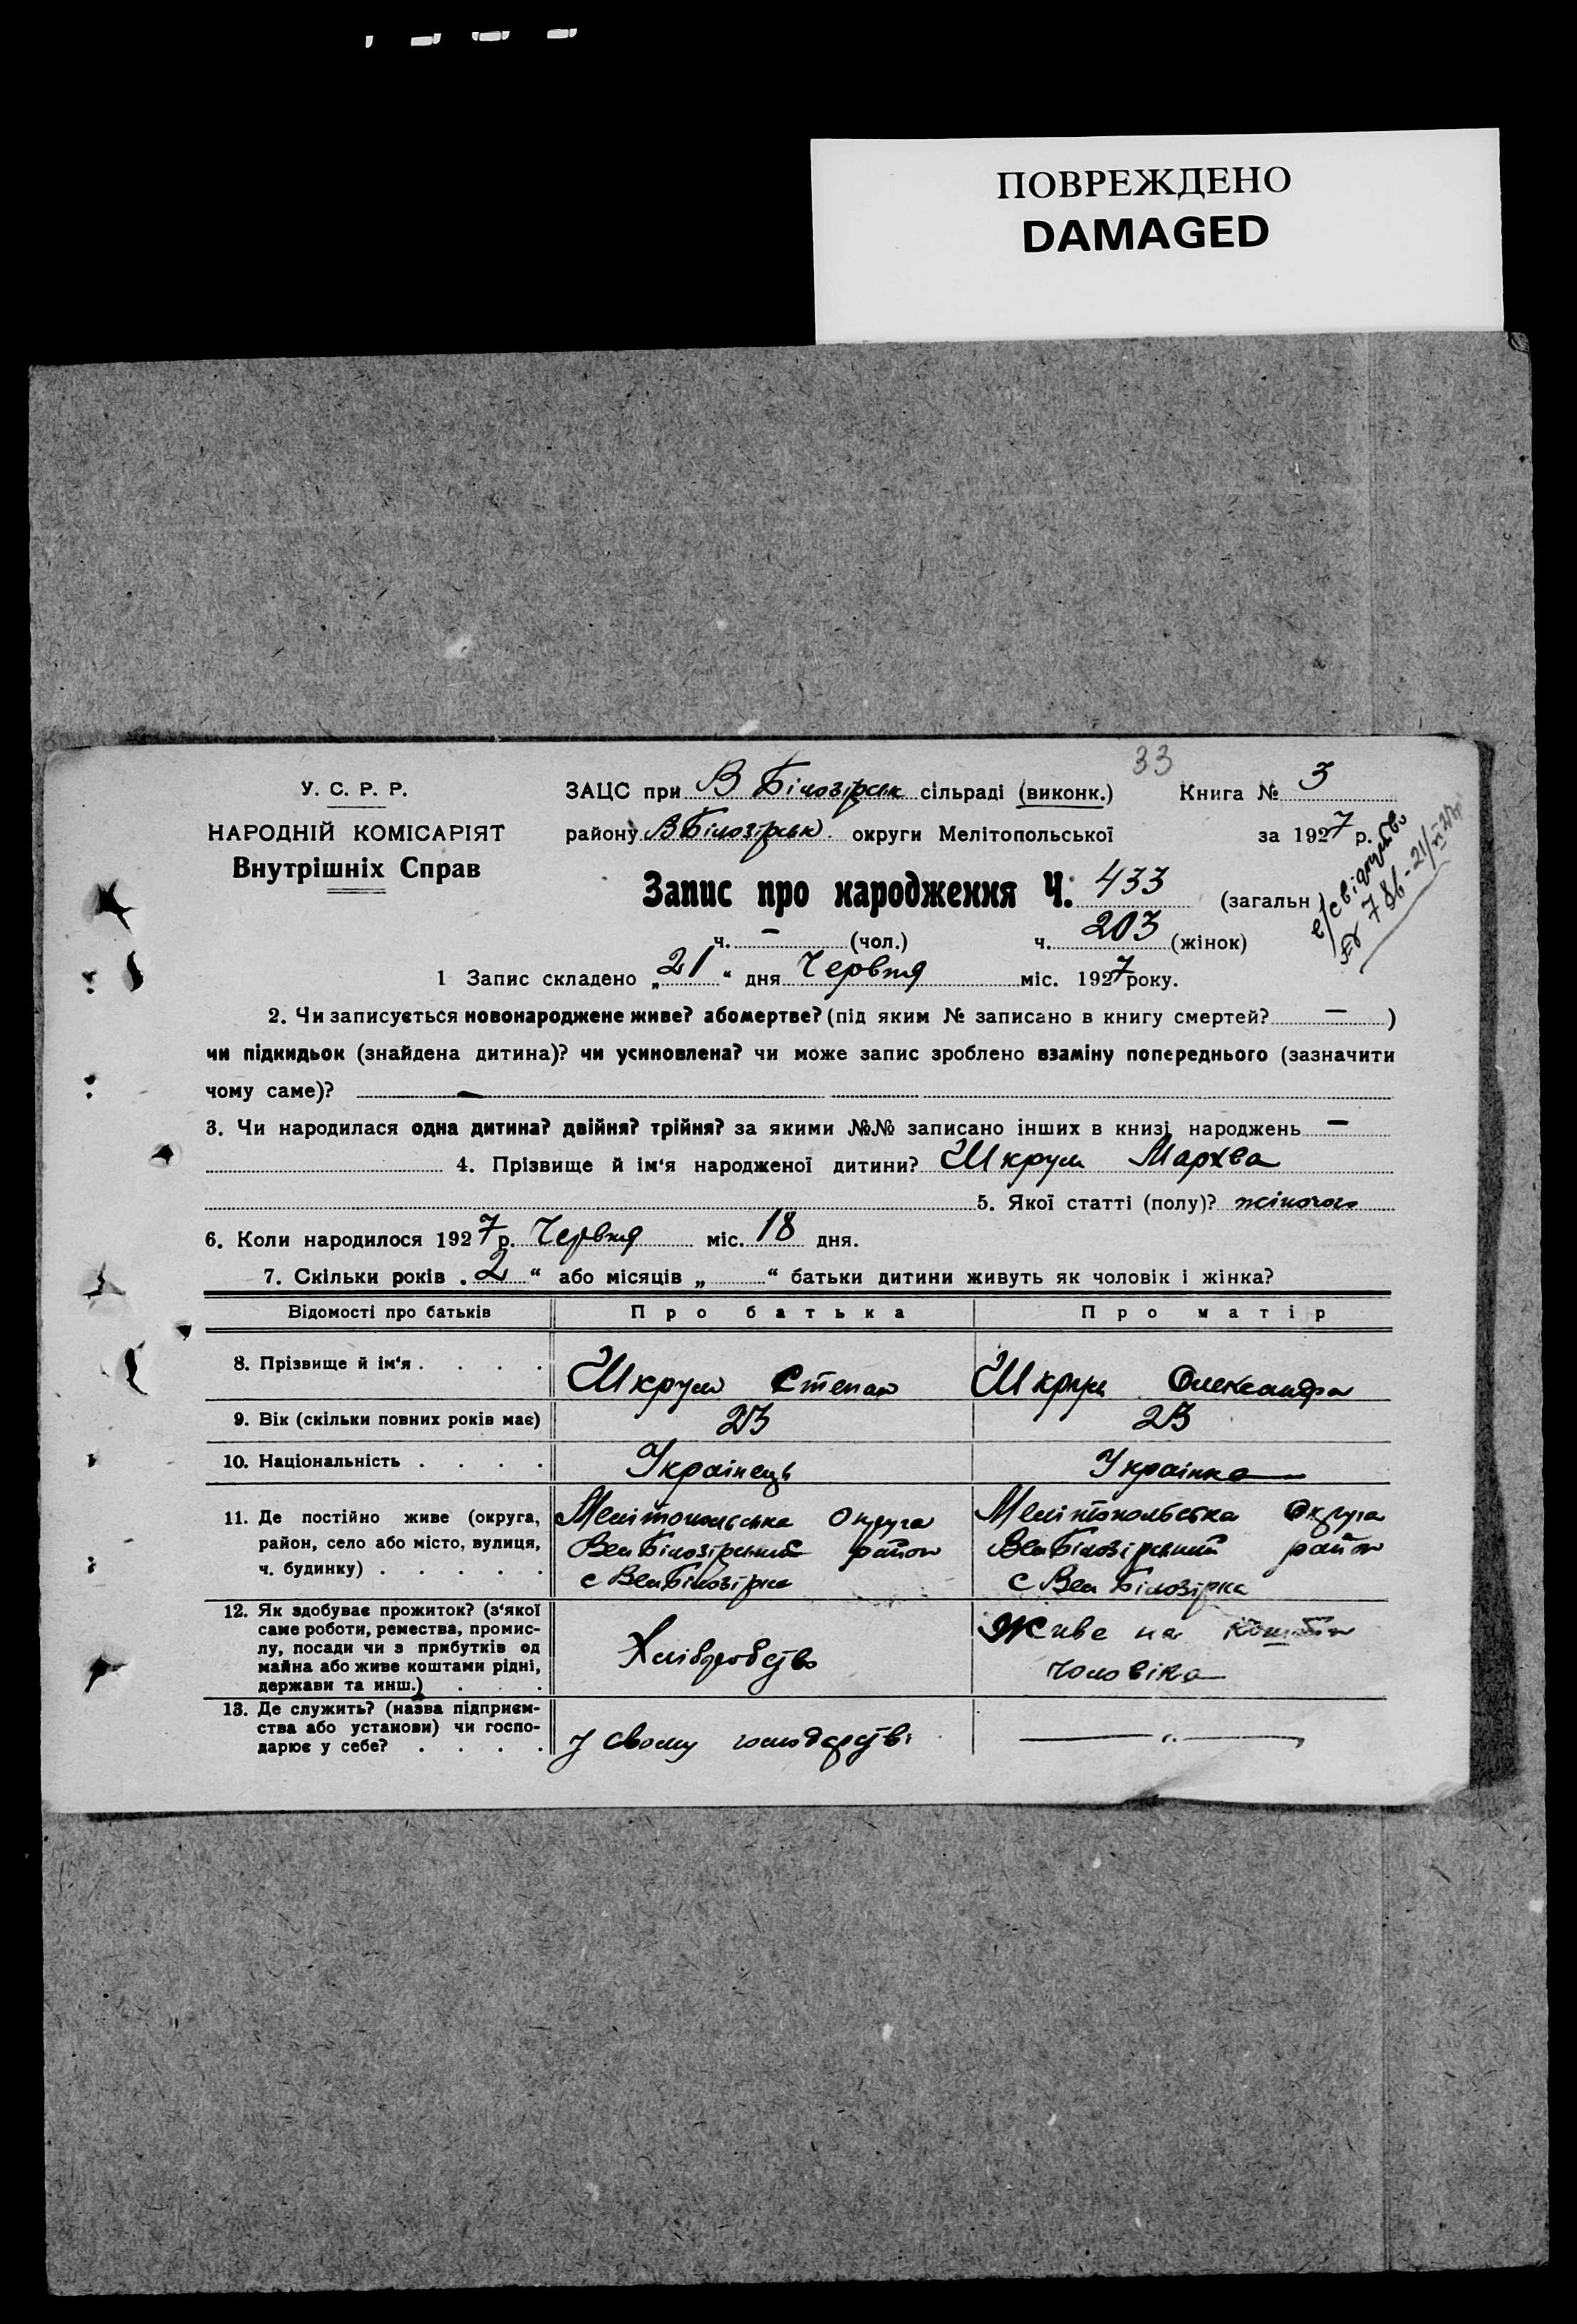 ПОВРЕЖДЕНО
DAMAGED
33
У. С. Р. Р.
НАРОДНІЙ КОМІСАРІЯТ
Внутрішніх Справ
ЗАЦС при В Білозірськ сільраді (виконк.) Книга № 3
району В Білозірськ округи Мелітопольської за 1927 р.
Запис про народження Ч. 433 (загальн
ч. — (чол.) ч. 203 (жінок)
1 Запис складено „21“ дня Червня міс. 1927 року.
2. Чи записується новонароджене живе? або мертве? (під яким № записано в книгу смертей? — )
чи підкидьок (знайдена дитина)? чи усиновлена? чи може запис зроблено взаміну попереднього (зазначити
чому саме)? —
3. Чи народилася одна дитина? двійня? трійня? за якими №№ записано інших в книзі народжень —
4. Прізвище й ім'я народженої дитини? Шкрум Мархва
5. Якої статті (полу)? жіночого
6. Коли народилося 1927 р. Червня міс. 18 дня.
7. Скільки років „2“ або місяців „ “ батьки дитини живуть як чоловік і жінка?
Відомості про батьків Про батька Про матір
8. Прізвище й ім'я . . . . Шкрум Степан Шкрум Олександра
9. Вік (скільки повних років має) 23 23
10. Національність . . . . Українець Українка
11. Де постійно живе (округа, Мелітопольська Округа Мелітопольська Округа
район, село або місто, вулиця, Вел Білозірський район Вел Білозірський район
ч. будинку) . . . . . с Вел Білозірка с Вел Білозірка
12. Як здобуває прожиток? (з'якої
саме роботи, ремества, промис-
лу, посади чи з прибутків од
майна або живе коштами рідні,
держави та инш.) . . .
Хліборобство
Живе на кошти
чоловіка
13. Де служить? (назва підприєм-
ства або установи) чи госпо-
дарює у себе? . . . .
У свому господарстві
— „ —
в/свідоцтво
№ 786 - 21/VI 27р